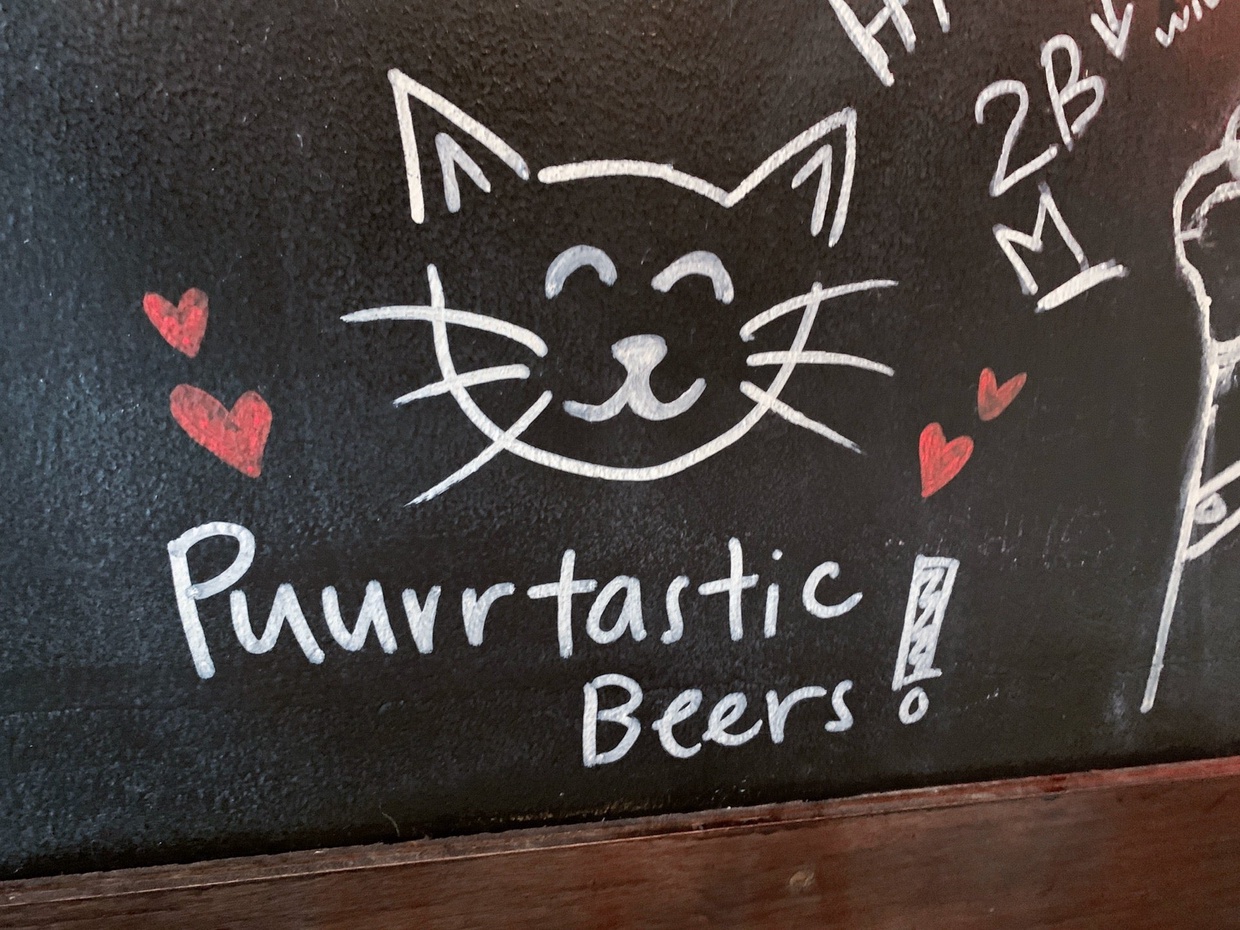 2B
M
Puurrtastic
Beers!